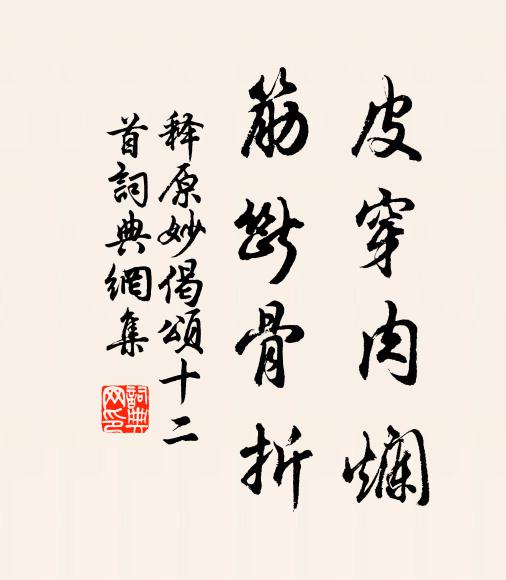 皮穿肉爛
筋斷骨折
释原妙偈頌十二
首詞典網集
詞典网印